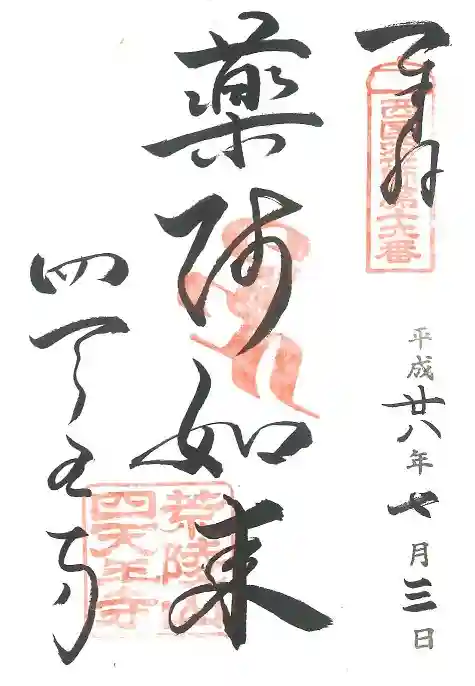 奉拝
西国薬師第十六番
平成廿八年七月三日
薬師如来
四天王寺
荒陵山
四天王寺